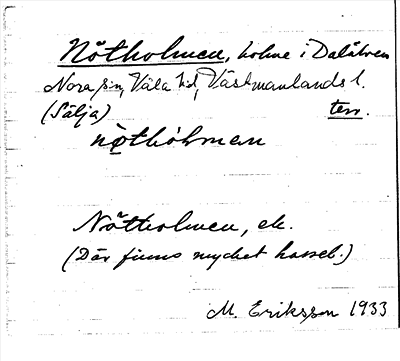 Nötholmen, holme i Dalälven
Nora sn, Våla hd, Västmanlands l.
(Sälja) terr.
nò̀thòlman
Nötholmen, ek.
(Där finns mycket hassel.)
M. Eriksson 1933